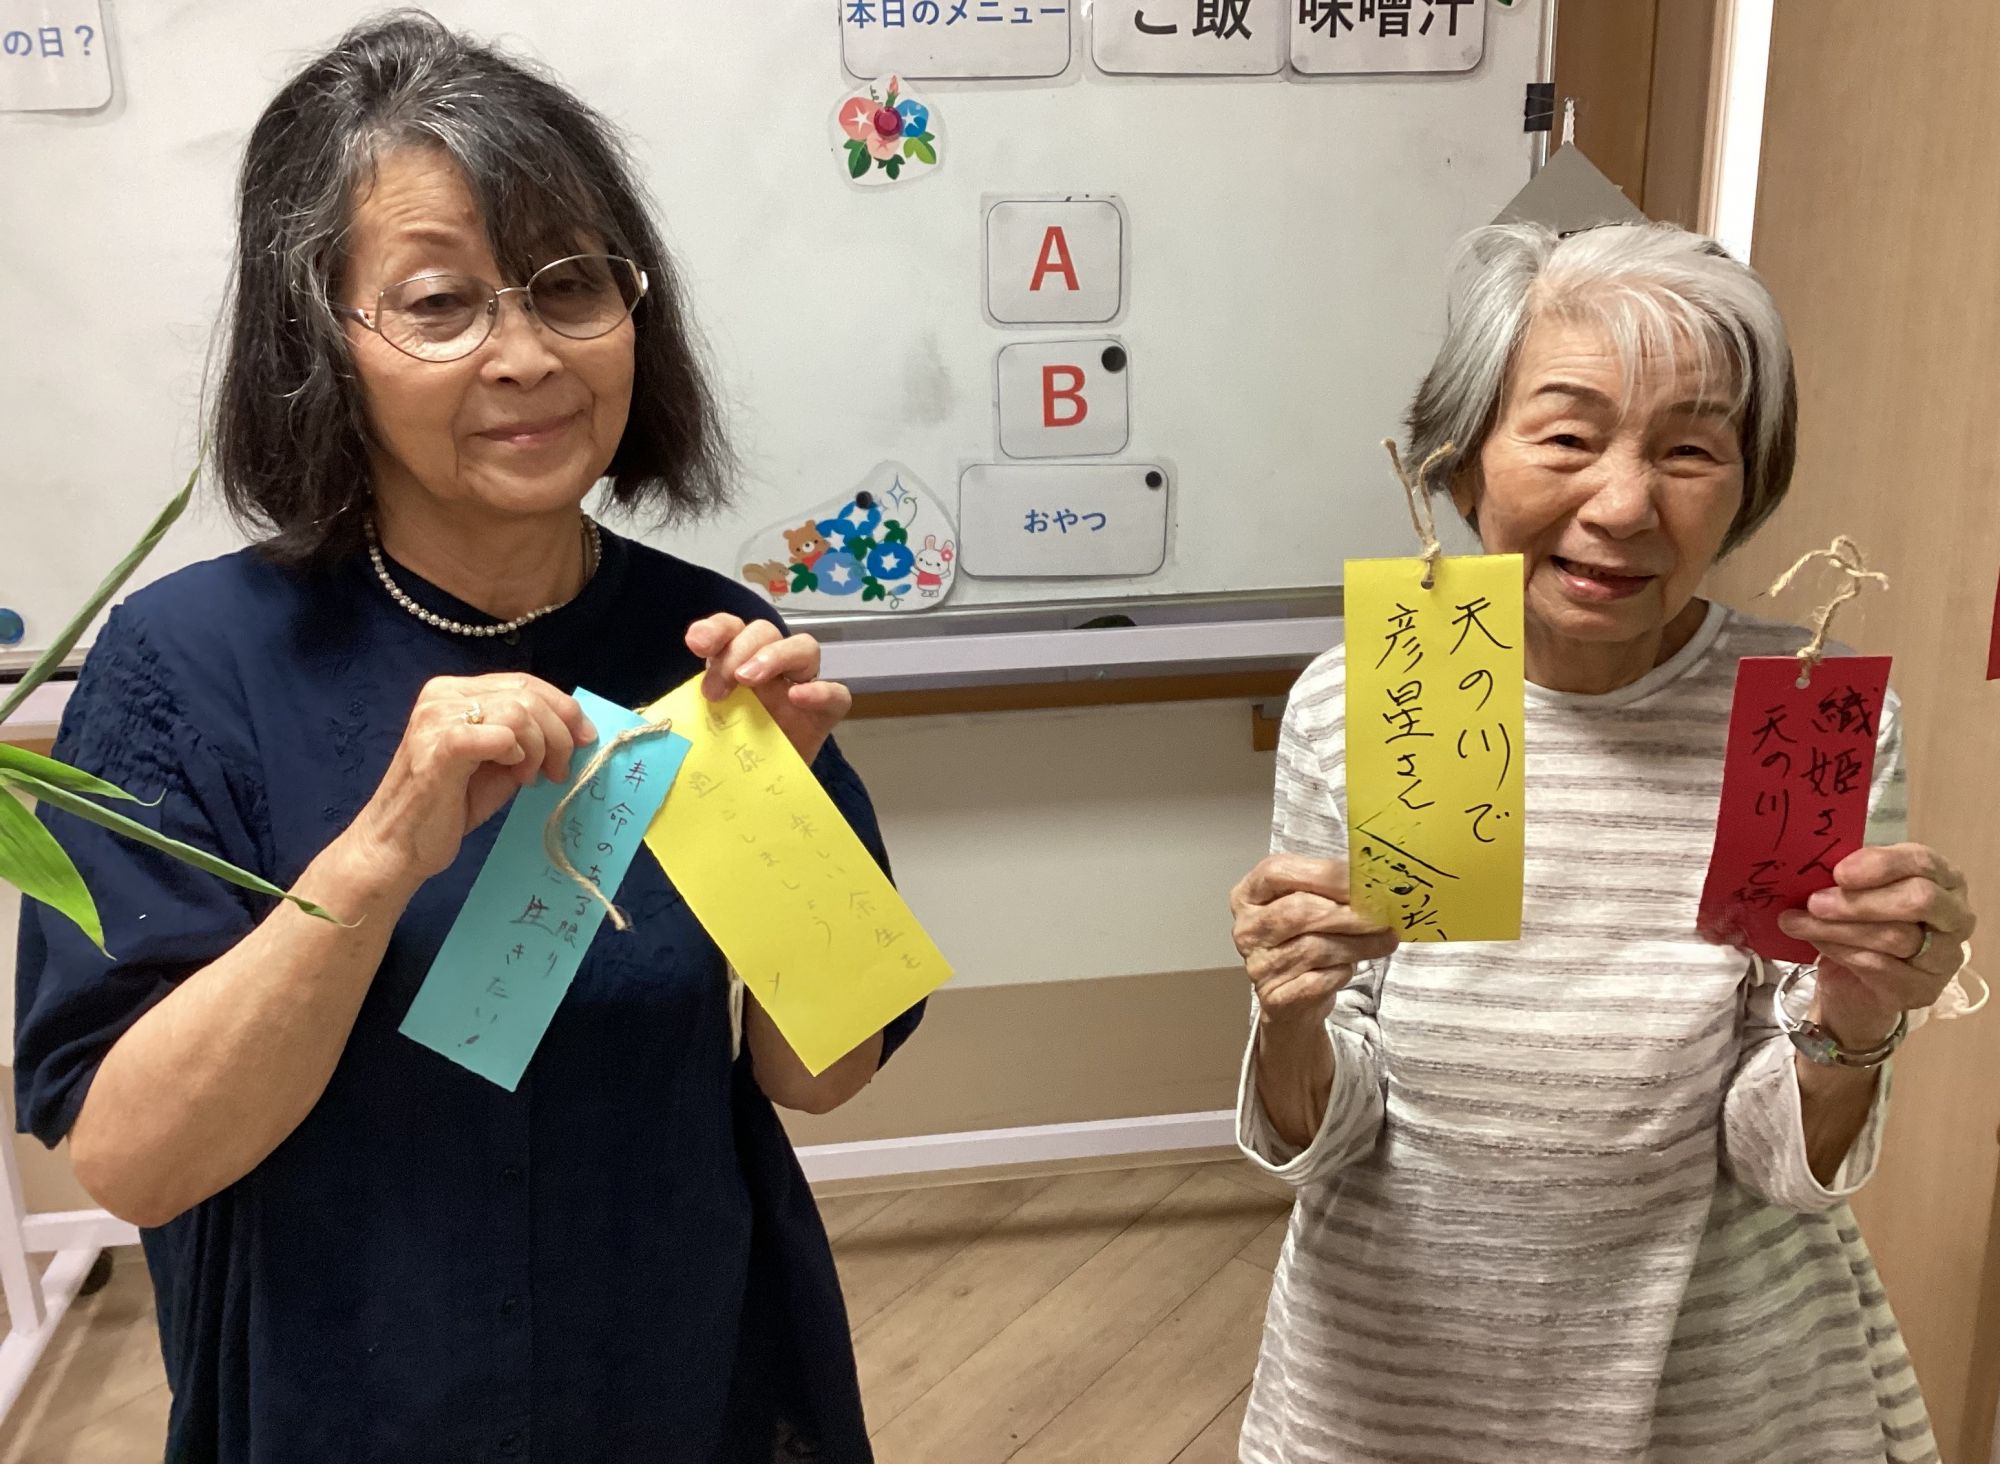 の日？
本日のメニュー
ご飯
味噌汁
A
B
おやつ
寿命のある限り
元気に生きたい！
健康で楽しい余生を
過ごしましょう
天の川で
彦星さん
織姫さん
天の川で待